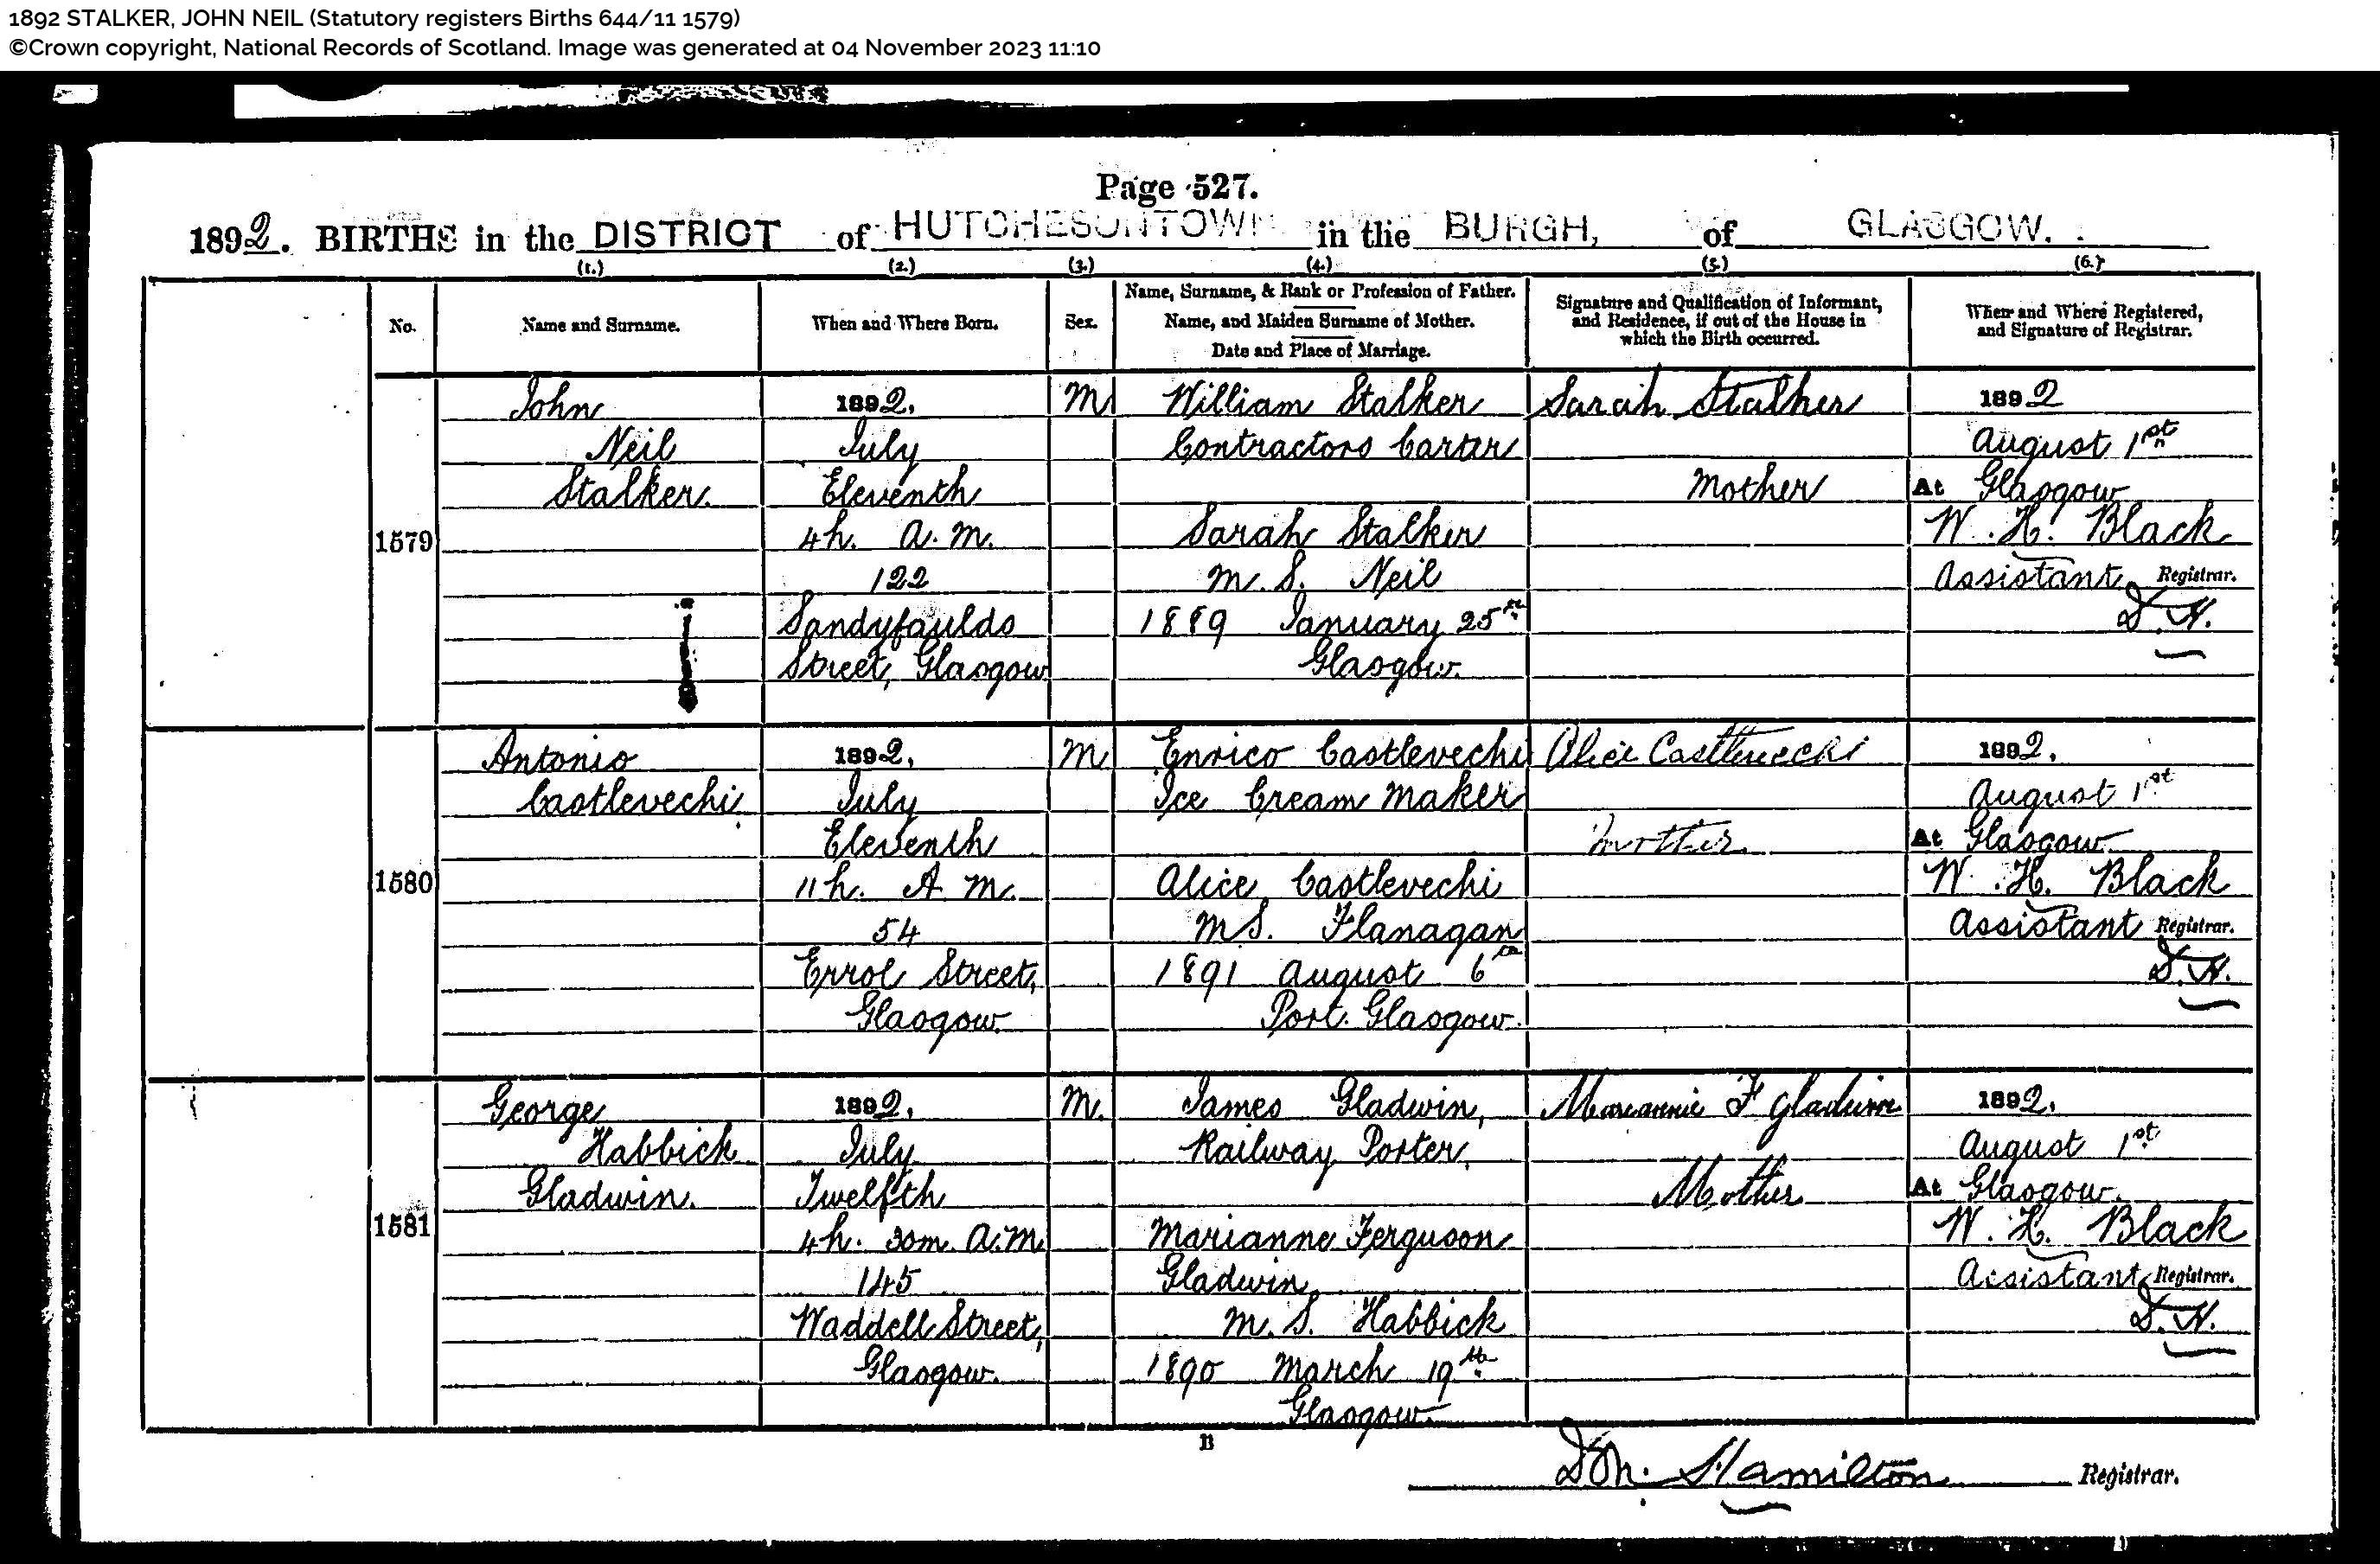 1892 STALKER, JOHN NEIL (Statutory registers Births 644/11 1579)
©Crown copyright, National Records of Scotland. Image was generated at 04 November 2023 11:10
Page 527.
1892. BIRTHS in the DISTRICT of HUTCHESONTOWN in the BURGH, of GLASGOW.
(1.) (2.) (3.) (4.) (5.) (6.)
No.
Name and Surname.
When and Where Born.
Sex.
Name, Surname, & Rank or Profession of Father.
Name, and Maiden Surname of Mother.
Date and Place of Marriage.
Signature and Qualification of Informant,
and Residence, if out of the House in
which the Birth occurred.
When and Where Registered,
and Signature of Registrar.
1579
John
Neil
Stalker.
1892,
July
Eleventh
4h. A.M.
122
Sandyfaulds
Street, Glasgow
M
William Stalker
Contractors Carter
Sarah Stalker
M.S. Neil
1889 January 25th
Glasgow.
Sarah Stalker
Mother
1892
August 1st
At Glasgow
W. H. Black
Assistant Registrar.
D.H.
1580
Antonio
Castlevechi
1892,
July
Eleventh
11h. A M.
54
Errol Street,
Glasgow.
M
Enrico Castlevechi
Ice Cream Maker
Alice Castlevechi
M S. Flanagan
1891 August 6th
Port Glasgow.
Alice Castlevecki
Mother
1892,
August 1st
At Glasgow.
W. H. Black
Assistant Registrar.
D.H.
1581
George
Habbick
Gladwin.
1892,
July
Twelfth
4h. 30m. A.M.
145
Waddell Street,
Glasgow.
M.
James Gladwin,
Railway Porter,
Marianne Ferguson
Gladwin
M.S. Habbick
1890 March 19th
Glasgow.
Mariannie F Gladwin
Mother
1892,
August 1st
At Glasgow.
W. H. Black
Assistant Registrar.
D.H.
B
Hamilton Registrar.